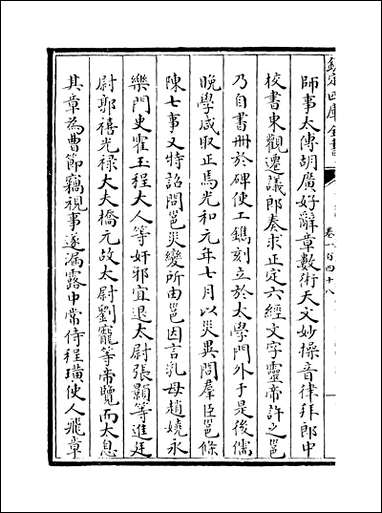 欽定四庫全書
卷一百四十八
師事太傅胡廣好辭章數術天文妙操音律拜郎中
校書東觀遷議郎奏求正定六經文字靈帝許之邕
乃自書冊於碑使工鐫刻立於太學門外于是後儒
晚學咸取正焉光和元年七月以災異問羣臣邕條
陳七事又特詔問邕災變所由邕因言乳母趙嬈永
樂門史霍玉程大人等奸邪宜退太尉張顥等進廷
尉郭禧光禄大夫橋元故太尉劉寵等帝覽而太息
其章為曹節竊視事遂漏露中常侍程璜使人飛章